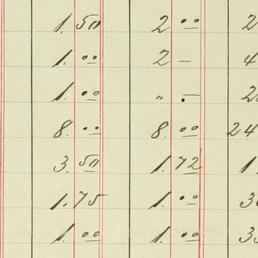 1.50 2.00 2
1.00 2 – 4
1.00 " .– 2
8.00 8.00 24
3.50 1.72 1
1.75 1.00 3
1.00 1.00 3